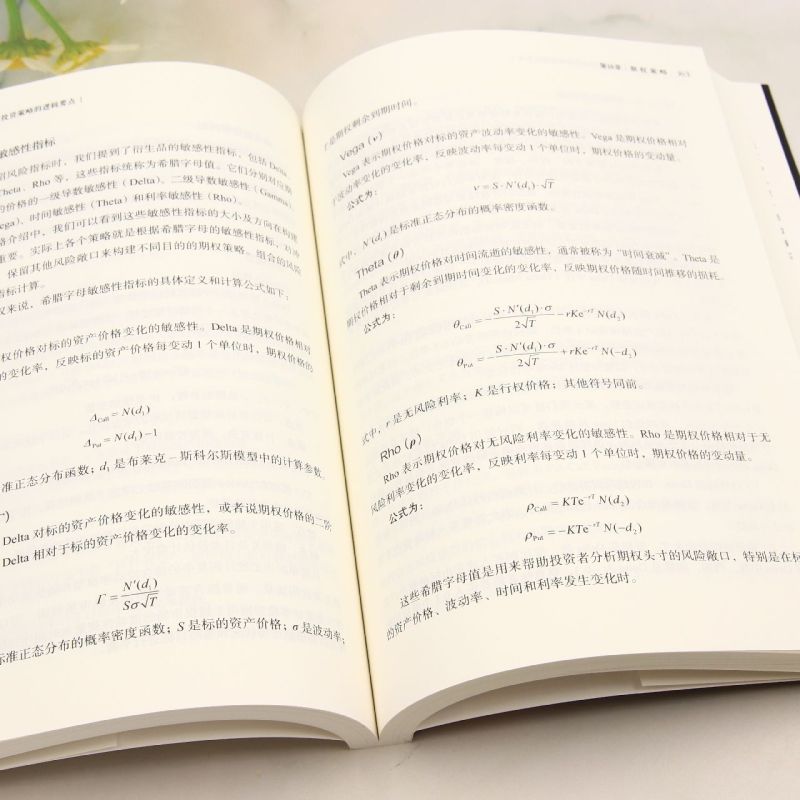 投资策略的逻辑要点
敏感性指标
风险指标时，我们提到了衍生品的敏感性指标，包括 Delta
Theta、Rho 等，这些指标统称为希腊字母值。它们分别对应期
的价格的一级导数敏感性（Delta）、二级导数敏感性（Gamma）
ega）、时间敏感性（Theta）和利率敏感性（Rho）。
介绍中，我们可以看到这些敏感性指标的大小及方向在构建
重要。实际上各个策略就是根据希腊字母的敏感性指标，对冲
保留其他风险敞口来构建不同目的的期权策略。组合的风险
指标计算。
来说，希腊字母敏感性指标的具体定义和计算公式如下：
权价格对标的资产价格变化的敏感性。Delta 是期权价格相对
的变化率，反映标的资产价格每变动 1 个单位时，期权价格的
Δ_Call = N(d₁)
Δ_Put = N(d₁)−1
准正态分布函数；d₁ 是布莱克－斯科尔斯模型中的计算参数。
Delta 对标的资产价格变化的敏感性，或者说期权价格的二阶
Delta 相对于标的资产价格变化的变化率。
Γ = N′(d₁) / Sσ√T
标准正态分布的概率密度函数；S 是标的资产价格；σ 是波动率；
期权策略
是期权剩余到期时间。
Vega（ν）
Vega 表示期权价格对标的资产波动率变化的敏感性。Vega 是期权价格相对
于波动率变化的变化率，反映波动率每变动 1 个单位时，期权价格的变动量。
公式为：
ν = S·N′(d₁)·√T
式中，N′(d₁) 是标准正态分布的概率密度函数。
Theta（θ）
Theta 表示期权价格对时间流逝的敏感性，通常被称为“时间衰减”。Theta 是
期权价格相对于剩余到期时间变化的变化率，反映期权价格随时间推移的损耗。
公式为：
θ_Call = −S·N′(d₁)·σ / 2√T − rKe^−rT N(d₂)
θ_Put = −S·N′(d₁)·σ / 2√T + rKe^−rT N(−d₂)
式中，r 是无风险利率；K 是行权价格；其他符号同前。
Rho（ρ）
Rho 表示期权价格对无风险利率变化的敏感性。Rho 是期权价格相对于无
风险利率变化的变化率，反映利率每变动 1 个单位时，期权价格的变动量。
公式为：
ρ_Call = KTe^−rT N(d₂)
ρ_Put = −KTe^−rT N(−d₂)
这些希腊字母值是用来帮助投资者分析期权头寸的风险敞口，特别是在标
的资产价格、波动率、时间和利率发生变化时。